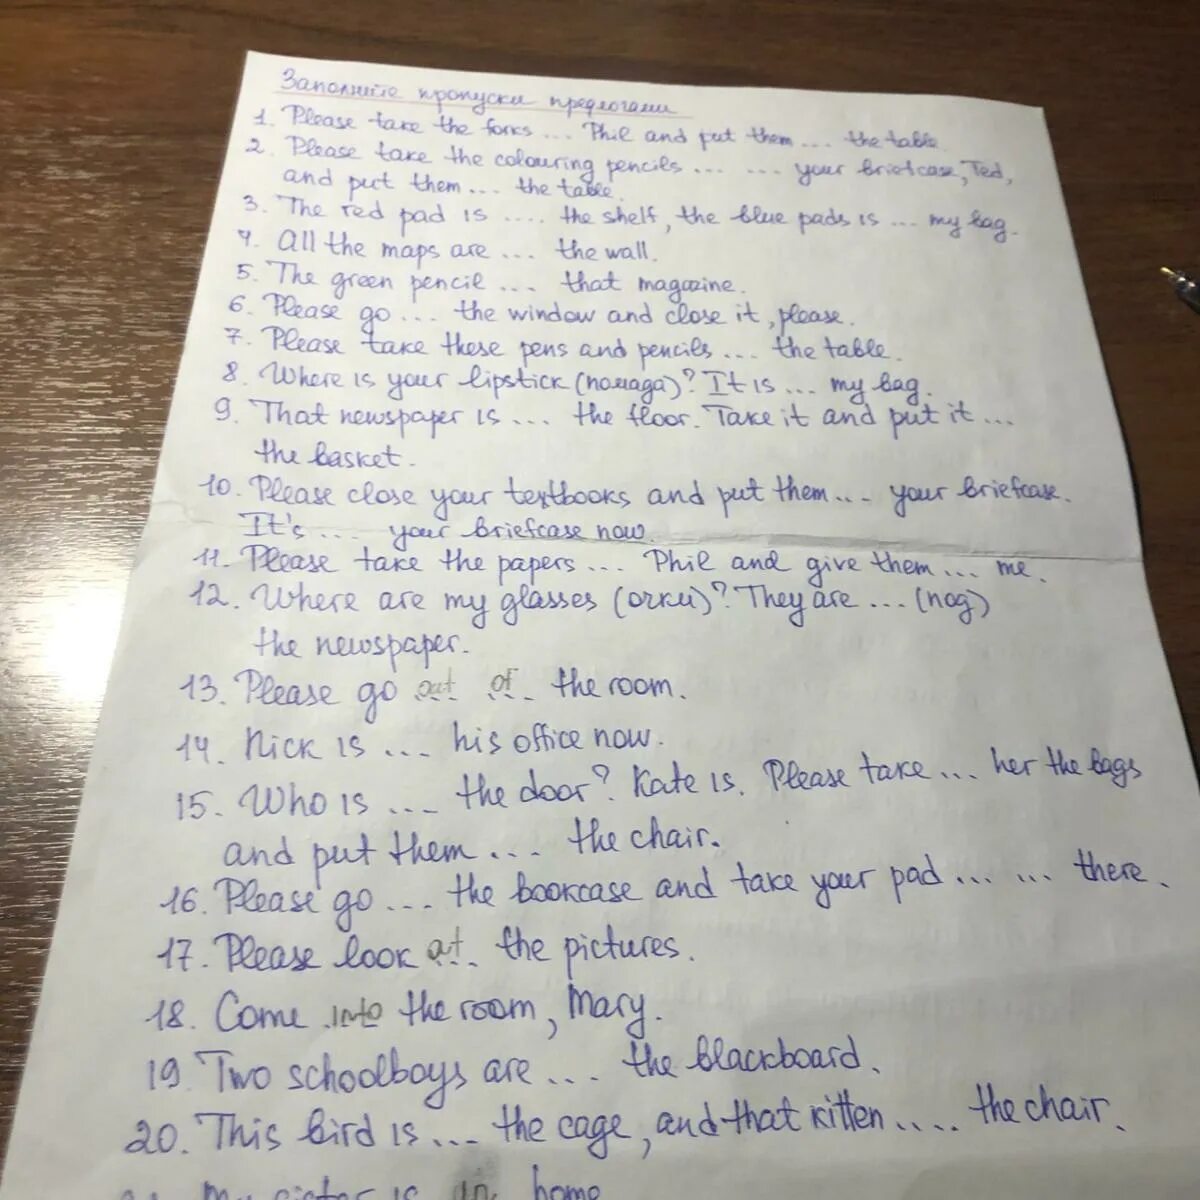 Заполните пропуски предлогами
1. Please take the forks ... Phil and put them ... the table.
2. Please take the colouring pencils ... ... your briefcase, Ted,
and put them ... the table.
3. The red pad is .... the shelf, the blue pads is ... my bag.
4. All the maps are ... the wall.
5. The green pencil ... that magazine.
6. Please go ... the window and close it, please.
7. Please take these pens and pencils ... the table.
8. Where is your lipstick (помада)? It is ... my bag.
9. That newspaper is ... the floor. Take it and put it ...
the basket.
10. Please close your textbooks and put them ... your briefcase.
It's ... your briefcase now.
11. Please take the papers ... Phil and give them ... me.
12. Where are my glasses (очки)? They are ... (под)
the newspaper.
13. Please go out of the room.
14. Nick is ... his office now.
15. Who is ... the door? Kate is. Please take ... her the bags
and put them ... the chair.
16. Please go ... the bookcase and take your pad ... ... there.
17. Please look at the pictures.
18. Come into the room, Mary.
19. Two schoolboys are ... the blackboard.
20. This bird is ... the cage, and that kitten .... the chair.
My sister is home